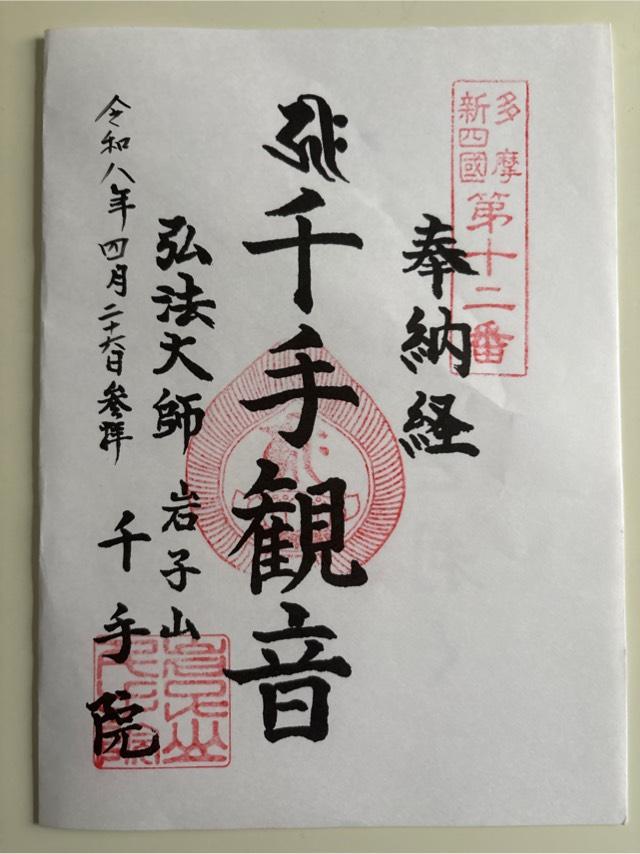 多摩
新四國
第十二番
奉納経
千手観音
弘法大師
岩子山
千手院
令和八年四月二十六日参拝